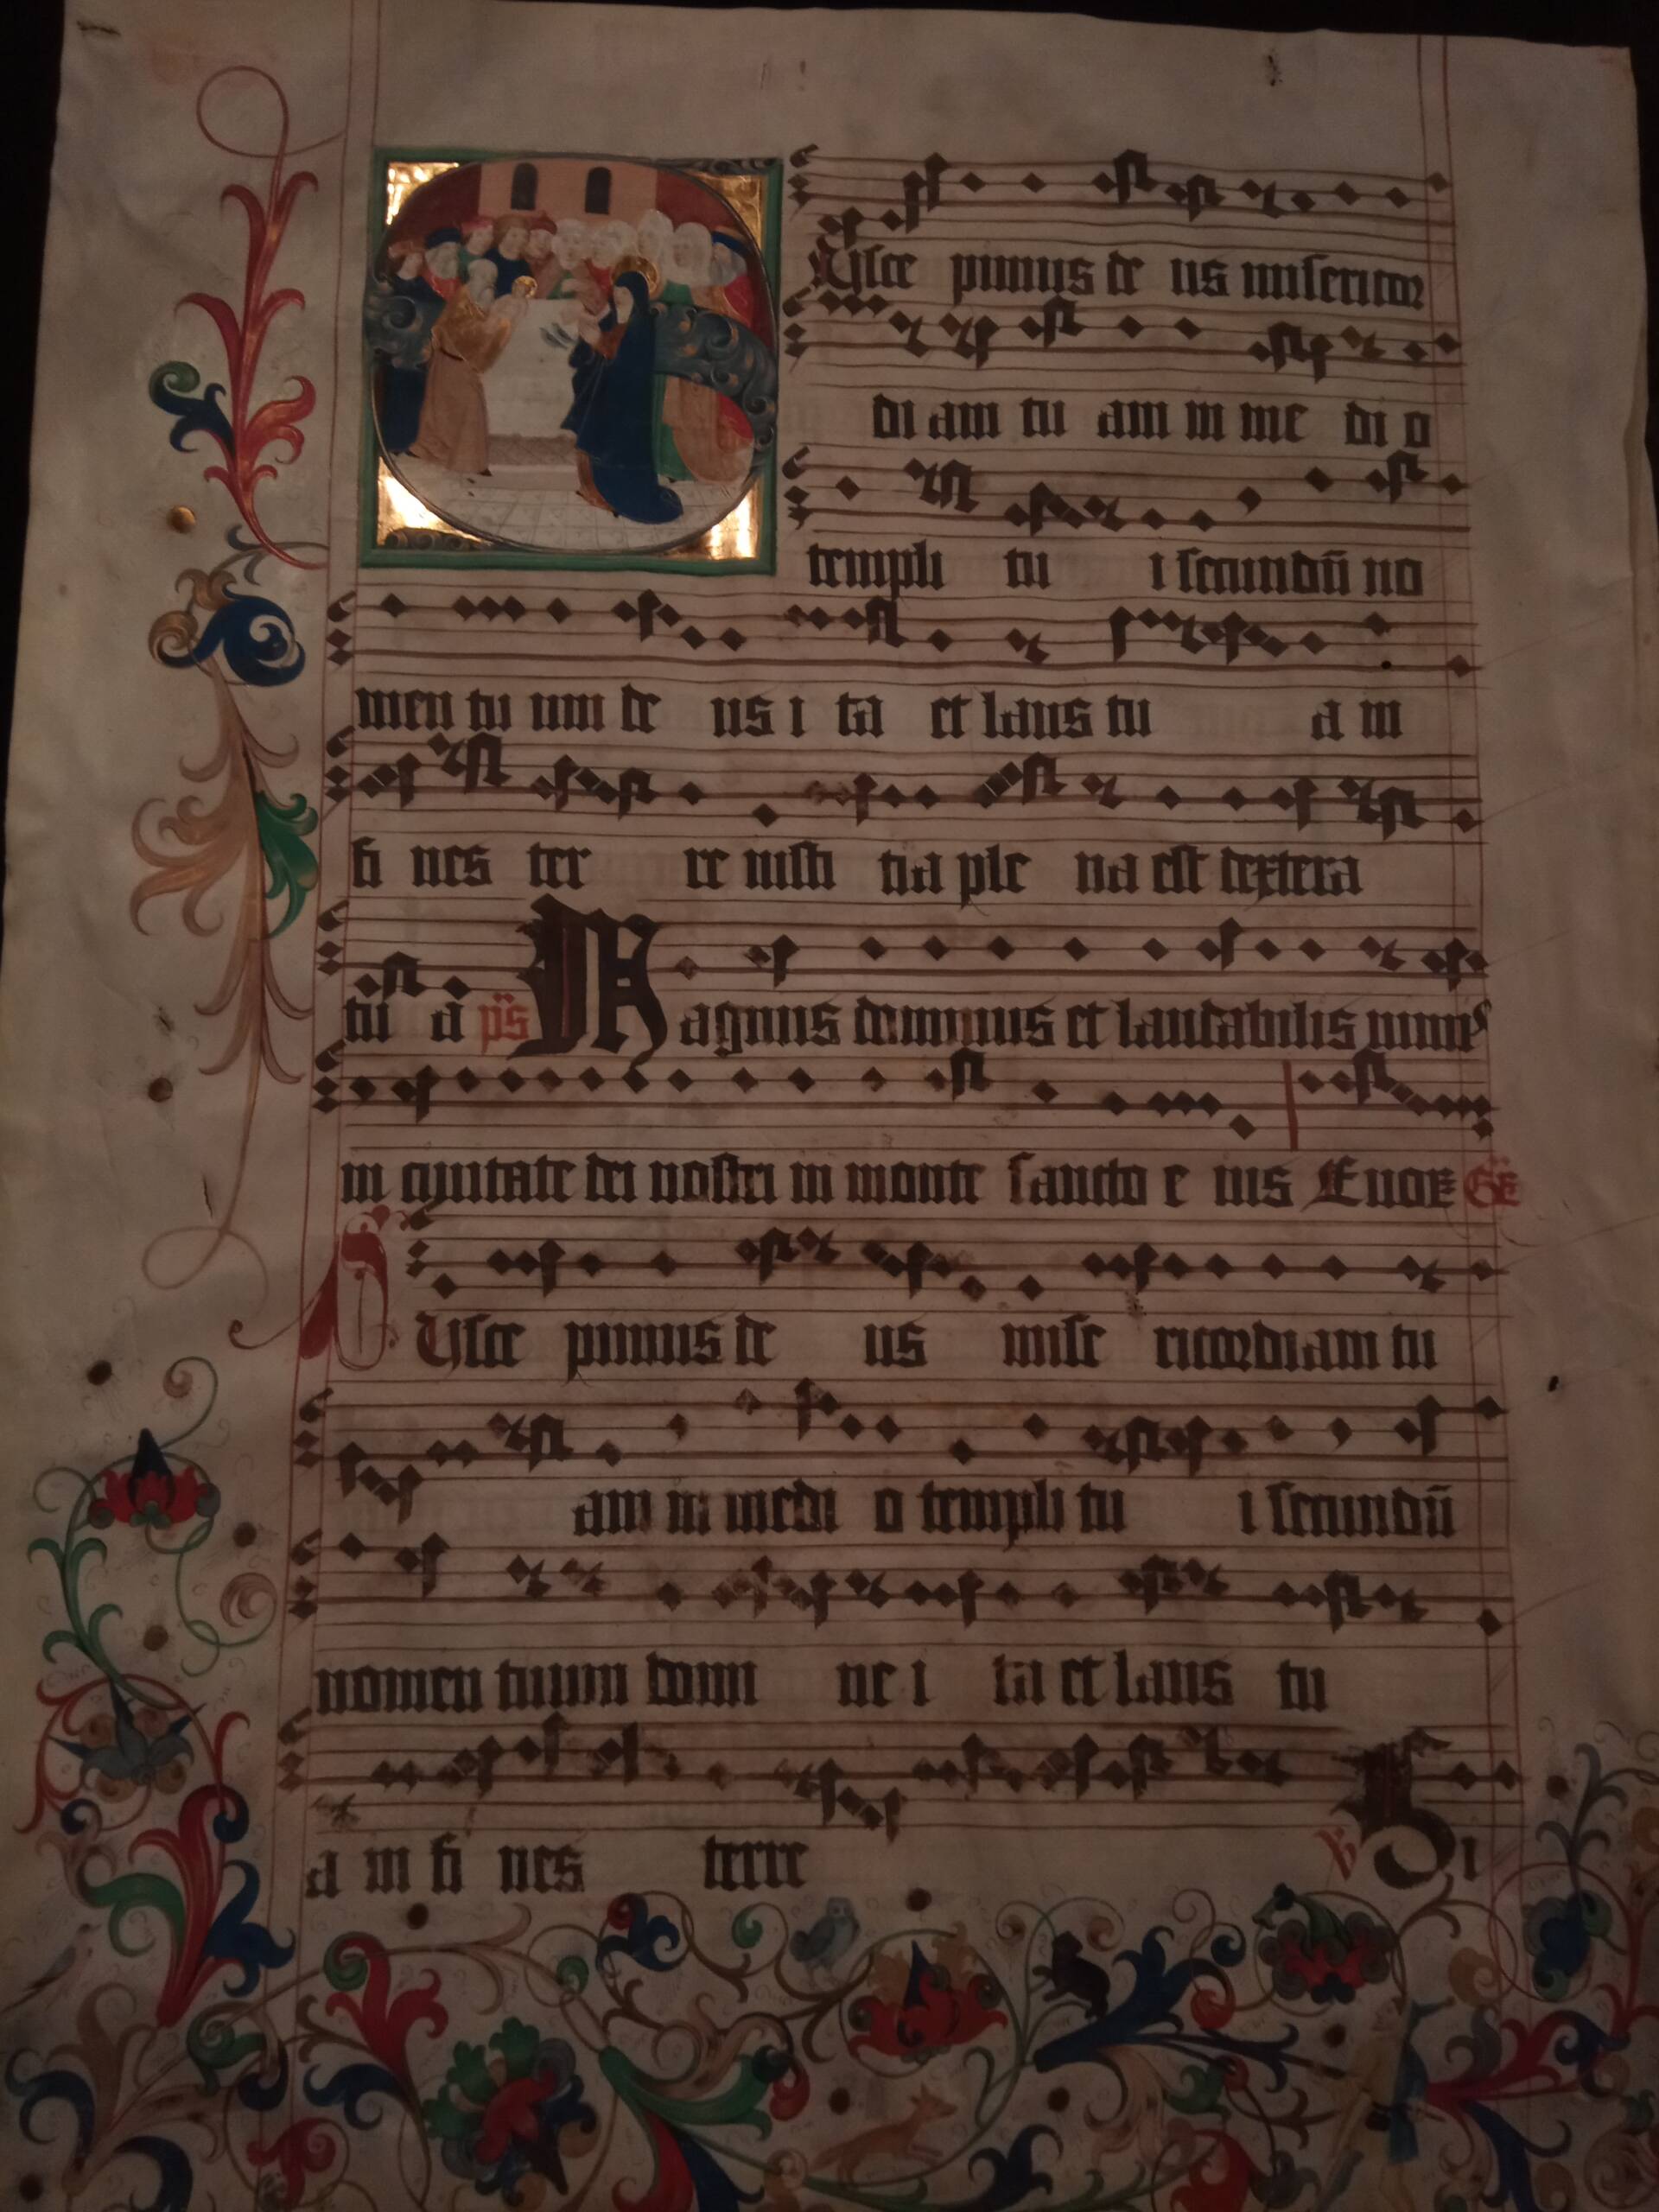 Usce pimus de us misericor
di am tu am in me di o
templi tu i secundū no
men tu um de us i ta et laus tu a in
fi nes ter re iusti tia ple na est dextera
tu a ps Magnus dominus et laudabilis nimis
in ciuitate dei nostri in monte sancto e ius Euoe Gͤ
S Usce pimus de us mise ricordiam tu
am in medi o templi tu i secundū
nomen tuum domi ne i ta et laus tu
a in fi nes terre ℣ Si